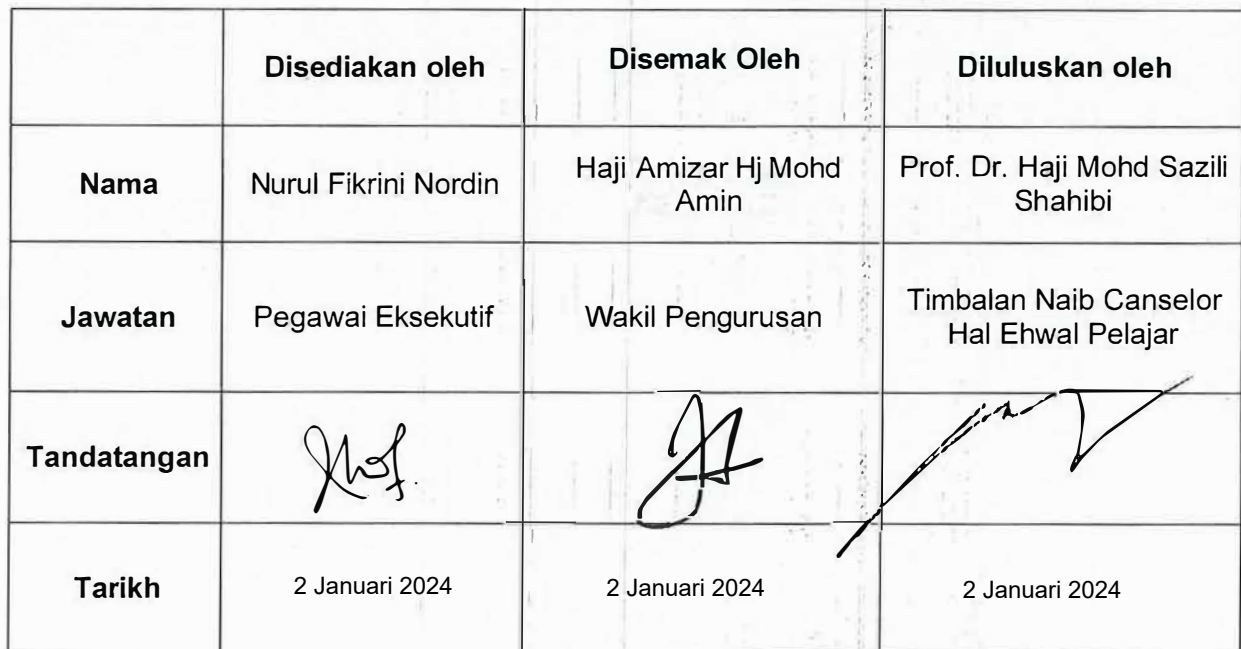 Disediakan oleh Disemak Oleh Diluluskan oleh
Nama Nurul Fikrini Nordin Haji Amizar Hj Mohd Amin Prof. Dr. Haji Mohd Sazili Shahibi
Jawatan Pegawai Eksekutif Wakil Pengurusan Timbalan Naib Canselor Hal Ehwal Pelajar
Tandatangan
Tarikh 2 Januari 2024 2 Januari 2024 2 Januari 2024